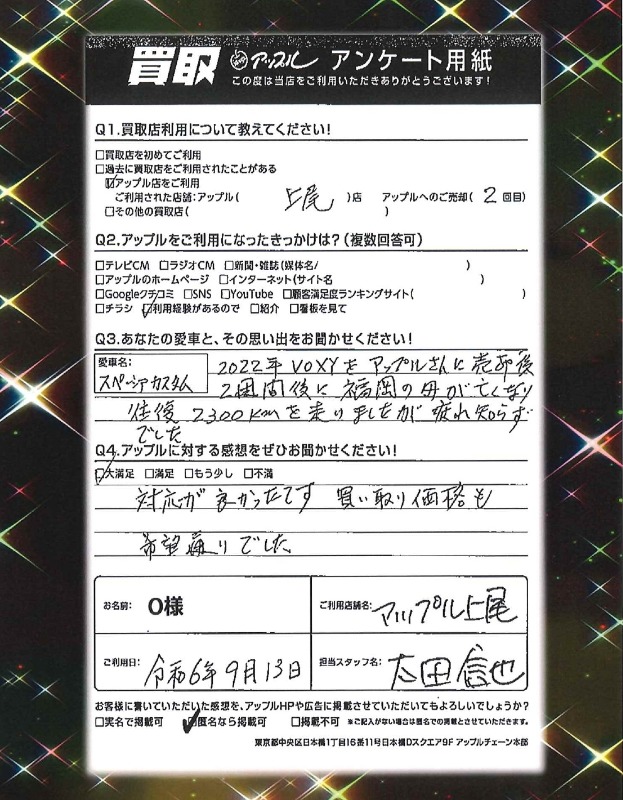 買取 アップル アンケート用紙
この度は当店をご利用いただきありがとうございます!
Q1.買取店利用について教えてください!
□買取店を初めてご利用
□過去に買取店をご利用されたことがある
☑アップル店をご利用
ご利用された店舗:アップル( 上尾 )店 アップルへのご売却( 2 回目)
□その他の買取店( )
Q2.アップルをご利用になったきっかけは?(複数回答可)
□テレビCM □ラジオCM □新聞・雑誌(媒体名/ )
□アップルのホームページ □インターネット(サイト名 )
□Googleクチコミ □SNS □YouTube □顧客満足度ランキングサイト( )
□チラシ ☑利用経験があるので □紹介 □看板を見て
Q3.あなたの愛車と、その思い出をお聞かせください!
愛車名:
スペーシアカスタム
2022年 VOXYをアップルさんに売却後
2週間後に福岡の母が亡くなり
往復 2300kmを走りましたが疲れ知らず
でした
Q4.アップルに対する感想をぜひお聞かせください!
☑大満足 □満足 □もう少し □不満
対応が良かったです 買い取り価格も
希望通りでした。
お名前: O様
ご利用店舗名: アップル上尾
ご利用日: 令和6年9月13日
担当スタッフ名: 太田信也
お客様に書いていただいた感想を、アップルHPや広告に掲載させていただいてもよろしいでしょうか?
□実名で掲載可 ☑匿名なら掲載可 □掲載不可 *ご記入がない場合は匿名での掲載とさせていただきます。
東京都中央区日本橋1丁目16番11号日本橋Dスクエア9F アップルチェーン本部